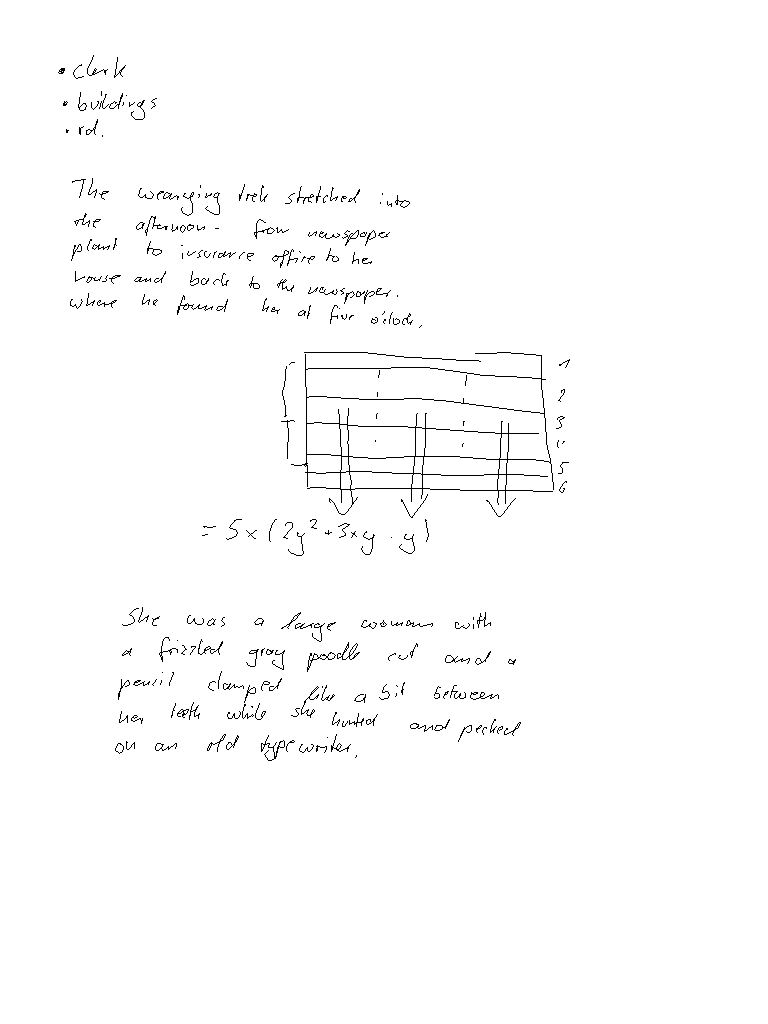 • clerk
• buildings
• rd.
The wearying trek stretched into
the afternoon - from newspaper
plant to insurance office to her
house and back to the newspaper.
where he found her at five o'clock.
1
2
3
4
5
6
= 5x(2y² + 3xy · y)
She was a large woman with
a frizzled gray poodle cut and a
pencil clamped like a bit between
her teeth while she hunted and pecked
on an old typewriter.